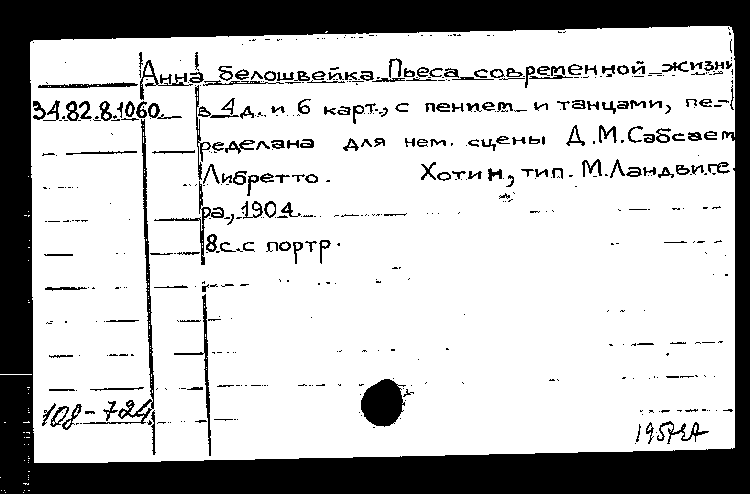 Анна белошвейка. Пьеса современной жизни
34.82.8.1060. в 4 д. и 6 карт., с пением и танцами, пе-
ределана для нем. сцены Д.М.Сабсаем
Либретто. Хотин, тип. М.Ландвиге-
ра, 1904.
8 с. с портр.
108-724